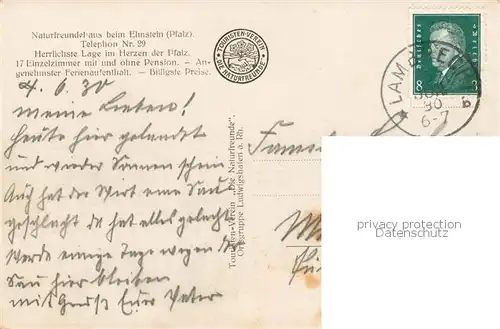 Naturfreundehaus beim Elmstein (Pfalz).
Telephon Nr. 29
Herrlichste Lage im Herzen der Pfalz.
17 Einzelzimmer mit und ohne Pension. – An-
genehmster Ferienaufenthalt. – Billigste Preise.
TOURISTEN-VEREIN
DIE NATURFREUNDE
Deutsches Reich
8
LAM
30
6-7
b
4. 6. 30
meine Lieben!
Heute hier gelandet
und wieder Sonnenschein
Auch hat der Wirt eine Sau
geschlacht da hat alles gelacht
werde einige Tage wegen der
Sau hier bleiben
mit Gruß Euer Vater
Touristen-Verein „Die Naturfreunde",
Ortsgruppe Ludwigshafen a. Rh.
privacy protection
Datenschutz